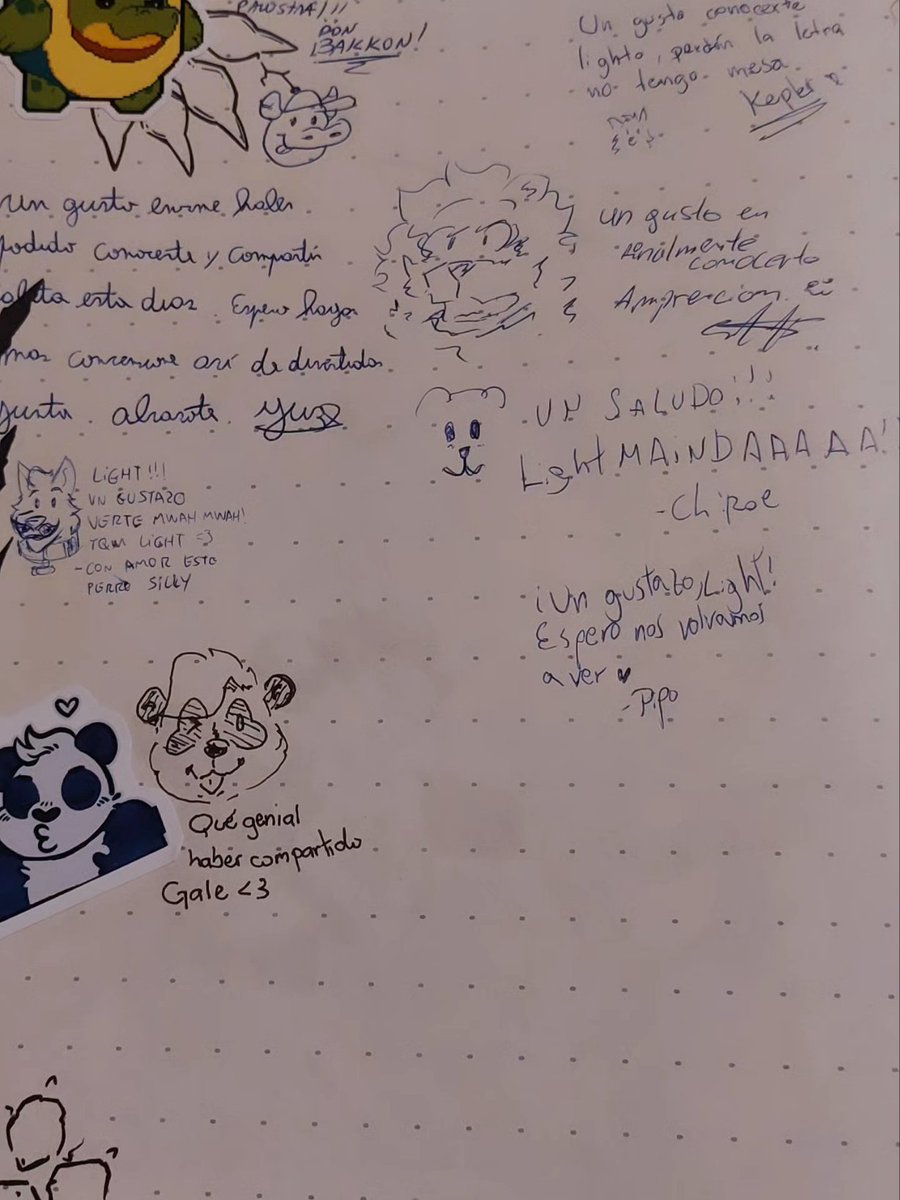 PAWSTRA!!!
DON
BAKKON!
Un gusto conocerte
lighto, perdón la letra
no tengo mesa
Kepler
un gusto enorme haber
podido conocerte y compartir
estos dias. Espero haya
mas convenciones así de divertidas
abrazote. Yuz
un gusto en
finalmente
conocerto
LIGHT!!!
UN GUSTAZO
VERTE MWAH MWAH!
TQM LIGHT =3
-CON AMOR ESTE
PERRO SILLY
UN SALUDO!!!
LightMAINDAAAAA!
-Chiroe
¡Un gustazo, Light!
Espero nos volvamos
a ver ♥
-Pipo
Qué genial
haber compartido
Gale <3